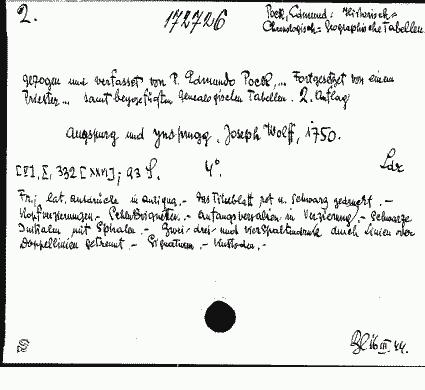 2. 172726 Pock, Edmund: Historisch=
Chronologisch=Geographische Tabellen.
gezogen und verfasset von P. Edmundo Pock, ... Fortgesetzet von einem
Priester ... samt beygefügten Genealogischen Tabellen. 2. Auflag
Augspurg und Ynsprugg, Joseph Wolff, 1750.
332 [XXVI]; 93 S. 4°. Ldr
Fr.; lat. Ausdrücke in Antiqua.- Das Titelblatt rot u. schwarz gedruckt. -
Kopfverzierungen.- Anfangsversalien in Verzierung.- Schwarze
Initialen mit Spiralen.- Zwei- drei- und vierspaltendruck durch Linien oder
Doppellinien getrennt.- Signaturen.- Kustoden.-
16. III. 44.